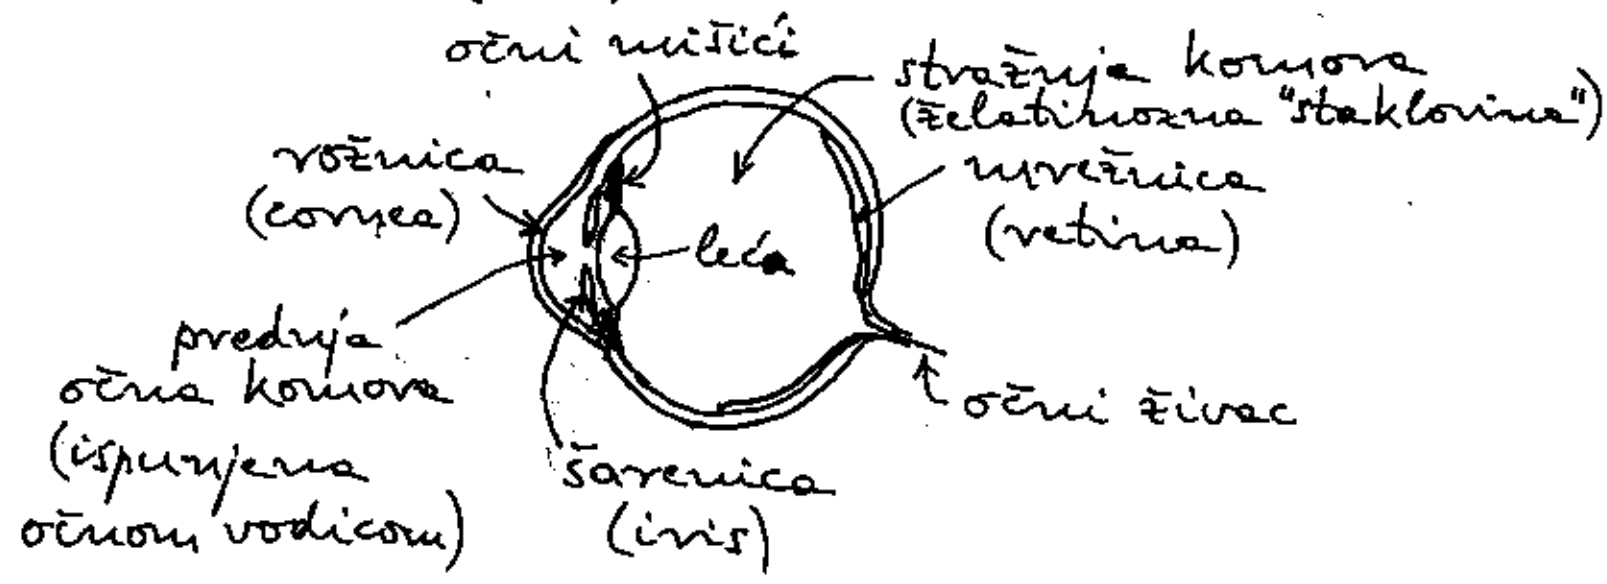 očni mišići
stražnja komora
(želatinozna "staklovina")
rožnica
(cornea)
mrežnica
(retina)
leća
prednja
očna komora
(ispunjena
očnom vodicom)
očni živac
šarenica
(iris)